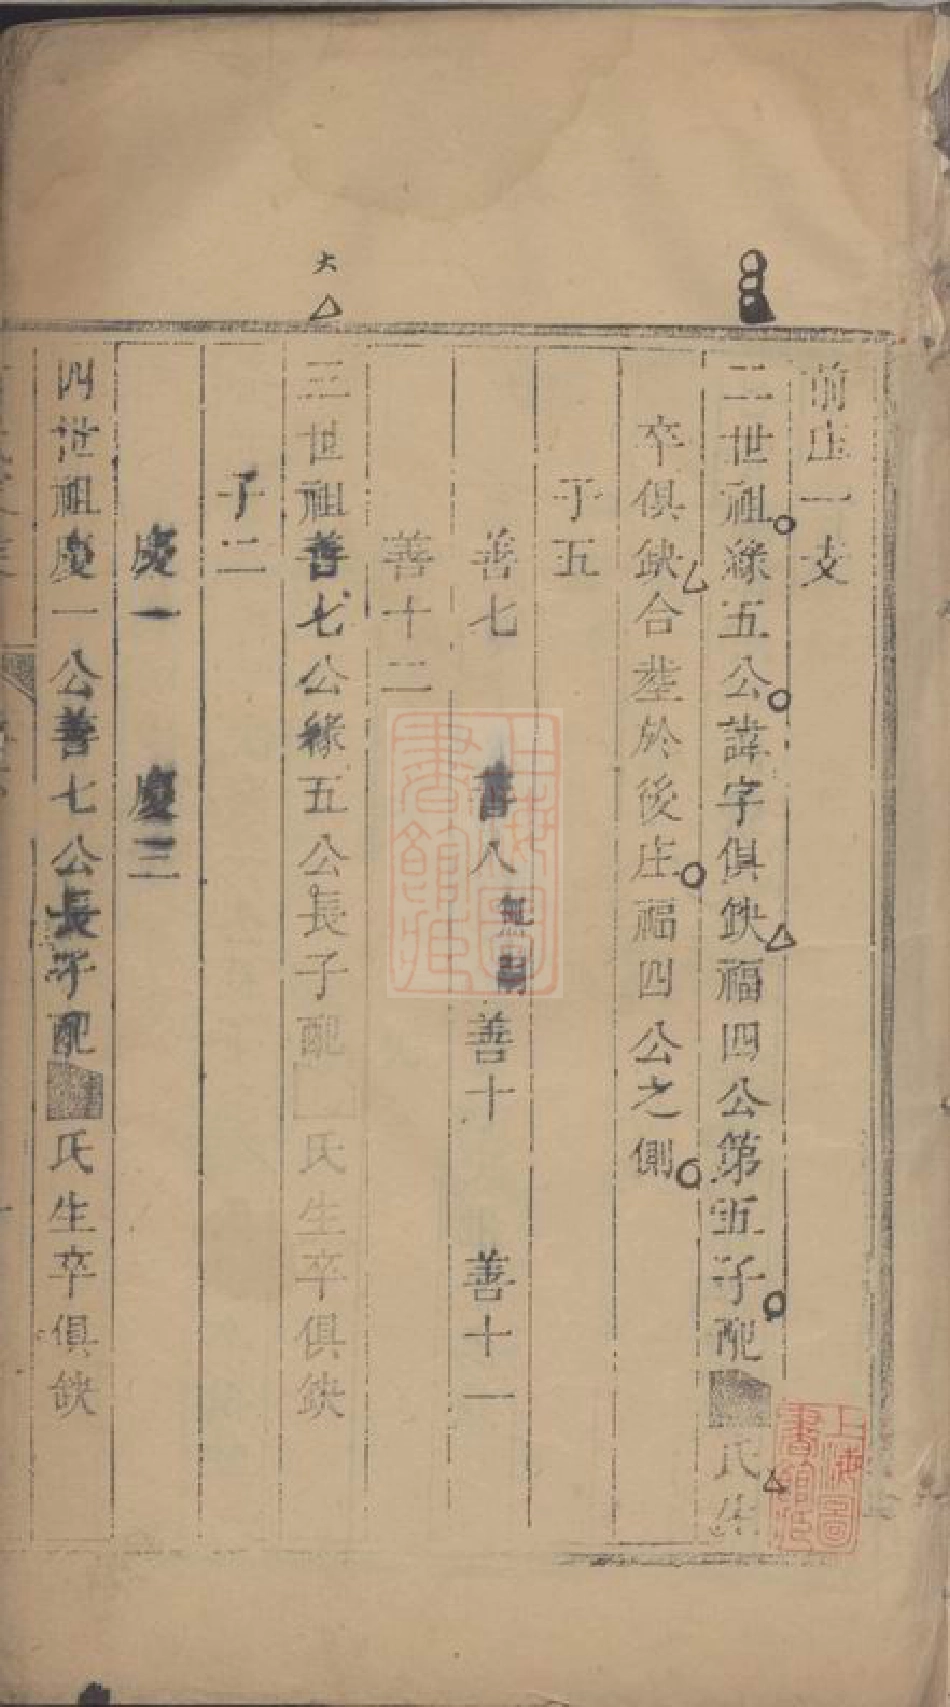 前庄一支
二世祖緣五公諱字俱缺福四公第五子配氏生
卒俱缺合塟於後庄福四公之側
子五
善七 善八無嗣 善十 善十一
善十二
大
三世祖善七公緣五公長子配 氏生卒俱缺
子二
慶一 慶三
四世祖慶一公善七公長子配氏生卒俱缺
上海圖書館藏
上海圖書館藏